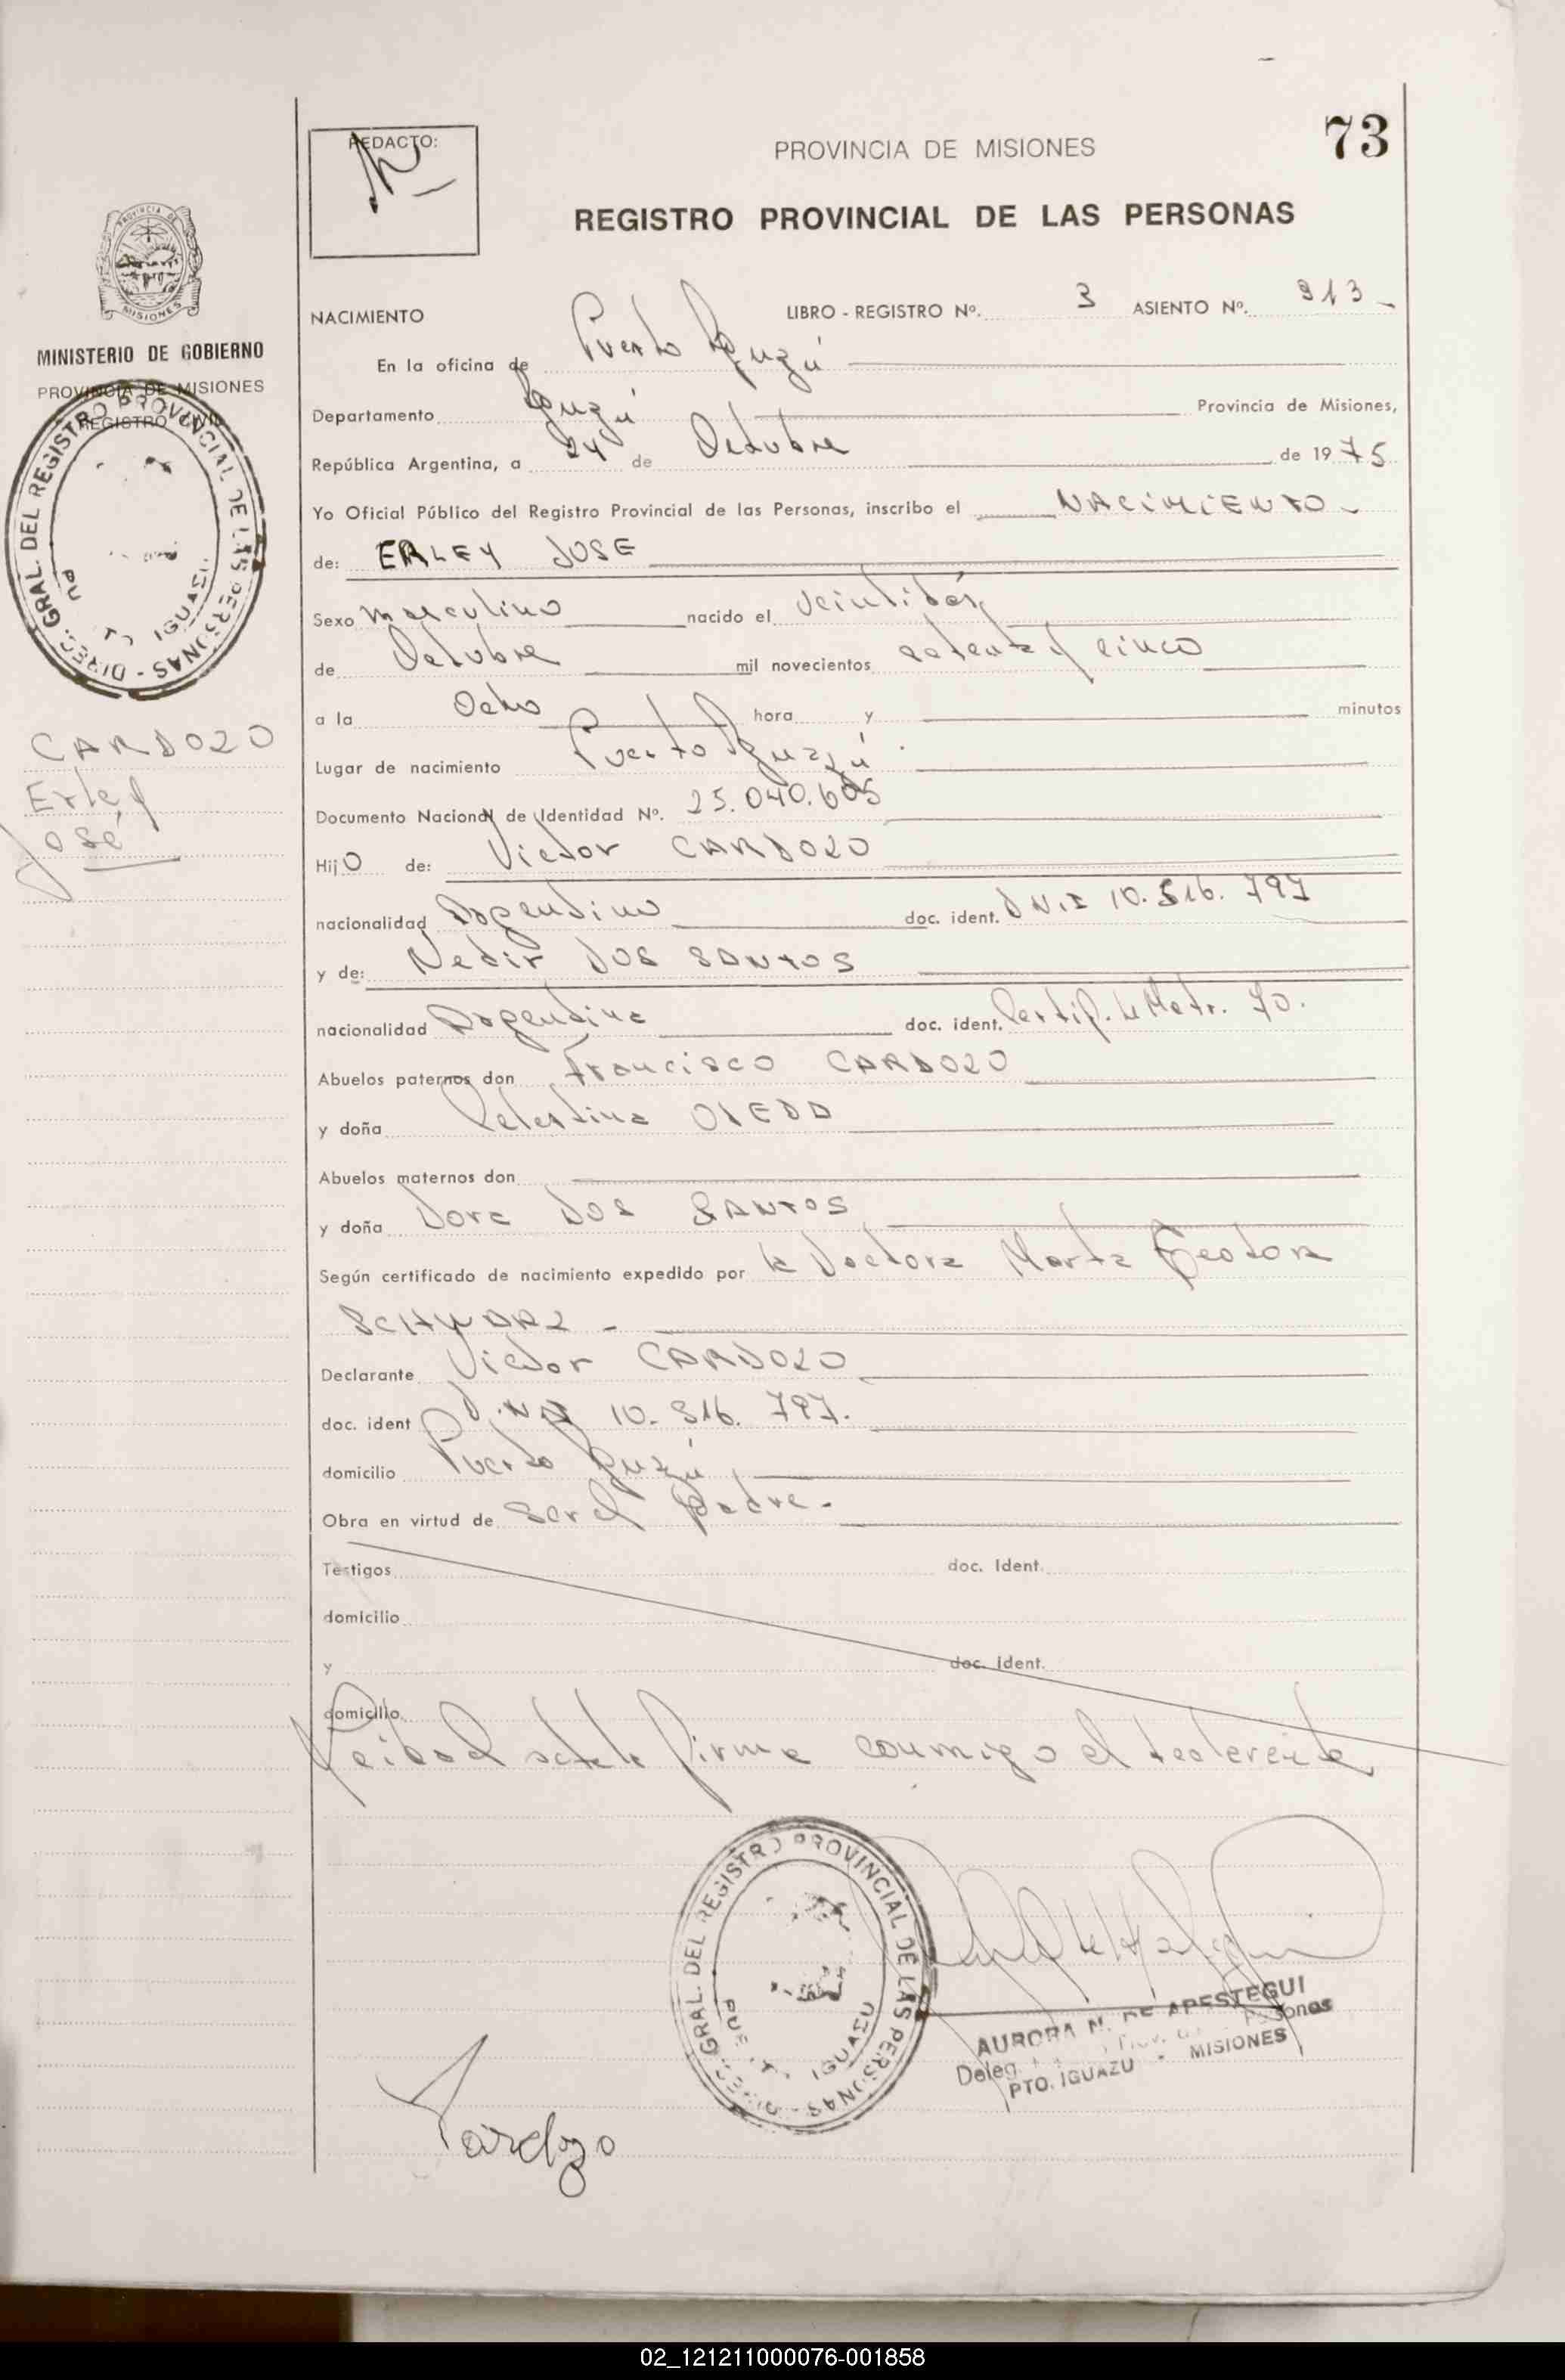 73
REDACTO:
PROVINCIA DE MISIONES
REGISTRO PROVINCIAL DE LAS PERSONAS
MISIONES
MINISTERIO DE GOBIERNO
PROVINCIA DE MISIONES
REGISTRO CIVIL
DIREC. GRAL. DEL REGISTRO PROVINCIAL DE LAS PERSONAS
IGUAZU
CARDOZO
Erley
José
NACIMIENTO LIBRO - REGISTRO Nº. 3 ASIENTO Nº. 313
En la oficina de Puerto Iguazú
Departamento Iguazú Provincia de Misiones,
República Argentina, a 24 de Octubre de 1975
Yo Oficial Público del Registro Provincial de las Personas, inscribo el NACIMIENTO
de: ERLEY JOSE
Sexo masculino nacido el
de Octubre mil novecientos setenta y cinco
a la Ocho hora y minutos
Lugar de nacimiento Puerto Iguazú
Documento Nacional de Identidad Nº. 25.040.605
Hijo de: Victor CARDOZO
nacionalidad Argentino doc. ident. DNI 10.816.797
y de: Nedir DOS SANTOS
nacionalidad Argentina doc. ident. Certif. 70.
Abuelos paternos don Francisco CARDOZO
y doña Celestina OJEDA
Abuelos maternos don
y doña Dora DOS SANTOS
Según certificado de nacimiento expedido por la Doctora Marta Teodora
SCHWARZ -
Declarante Victor CARDOZO
doc. ident D.N.I 10.816.797.
domicilio Puerto Iguazú
Obra en virtud de ser el padre.
Testigos doc. Ident.
domicilio
y doc. ident.
domicilio
Leida el acta la firma conmigo el
DIREC. GRAL. DEL REGISTRO PROVINCIAL DE LAS PERSONAS
IGUAZU
AURORA N. DE APESTEGUI
Deleg. Personas
PTO. IGUAZU - MISIONES
Cardozo
02_121211000076-001858